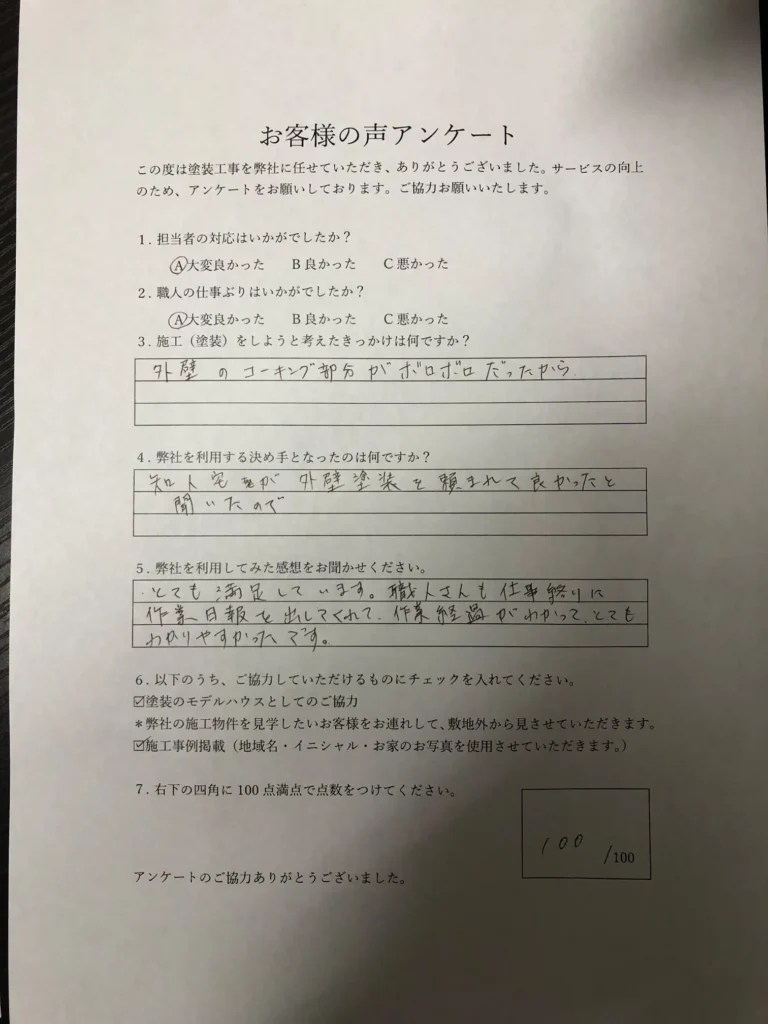 お客様の声アンケート
この度は塗装工事を弊社に任せていただき、ありがとうございました。サービスの向上
のため、アンケートをお願いしております。ご協力お願いいたします。
1. 担当者の対応はいかがでしたか？
A大変良かった B良かった C悪かった
2. 職人の仕事ぶりはいかがでしたか？
A大変良かった B良かった C悪かった
3. 施工（塗装）をしようと考えたきっかけは何ですか？
外壁のコーキング部分がボロボロだったから
4. 弊社を利用する決め手となったのは何ですか？
知人宅が外壁塗装を頼まれて良かったと
聞いたので
5. 弊社を利用してみた感想をお聞かせください。
とても満足しています。職人さんも仕事終りに
作業日報を出してくれて、作業経過がわかって、とても
わかりやすかったです。
6. 以下のうち、ご協力していただけるものにチェックを入れてください。
☑塗装のモデルハウスとしてのご協力
＊弊社の施工物件を見学したいお客様をお連れして、敷地外から見させていただきます。
☑施工事例掲載（地域名・イニシャル・お家のお写真を使用させていただきます。）
7. 右下の四角に 100 点満点で点数をつけてください。
100 /100
アンケートのご協力ありがとうございました。